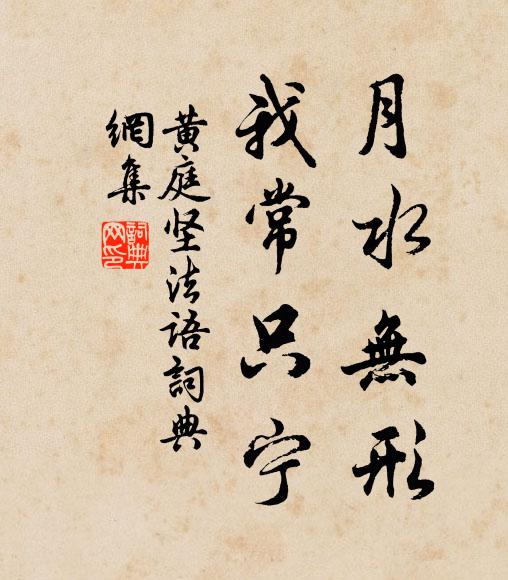 月水無形
我常只宁
黄庭坚法语詞典
網集
詞典
网印